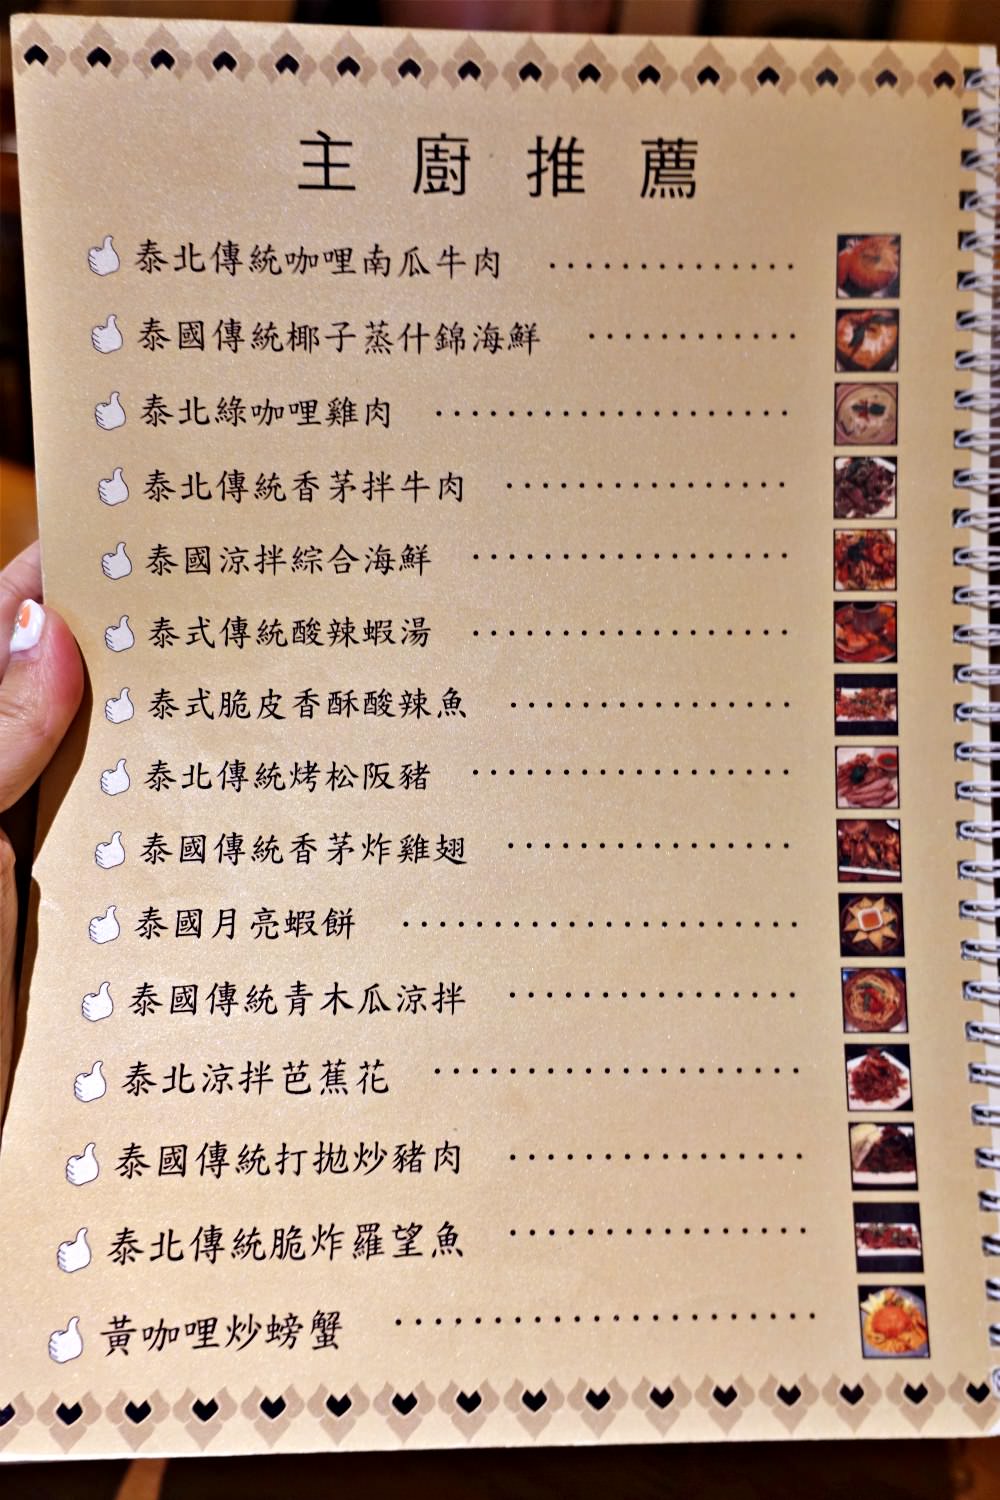 主廚推薦
泰北傳統咖哩南瓜牛肉 ··············
泰國傳統椰子蒸什錦海鮮 ············
泰北綠咖哩雞肉 ····················
泰北傳統香茅拌牛肉 ················
泰國涼拌綜合海鮮 ··················
泰式傳統酸辣蝦湯 ··················
泰式脆皮香酥酸辣魚 ················
泰北傳統烤松阪豬 ··················
泰國傳統香茅炸雞翅 ················
泰國月亮蝦餅 ······················
泰國傳統青木瓜涼拌 ················
泰北涼拌芭蕉花 ····················
泰國傳統打拋炒豬肉 ················
泰北傳統脆炸羅望魚 ················
黃咖哩炒螃蟹 ·······················